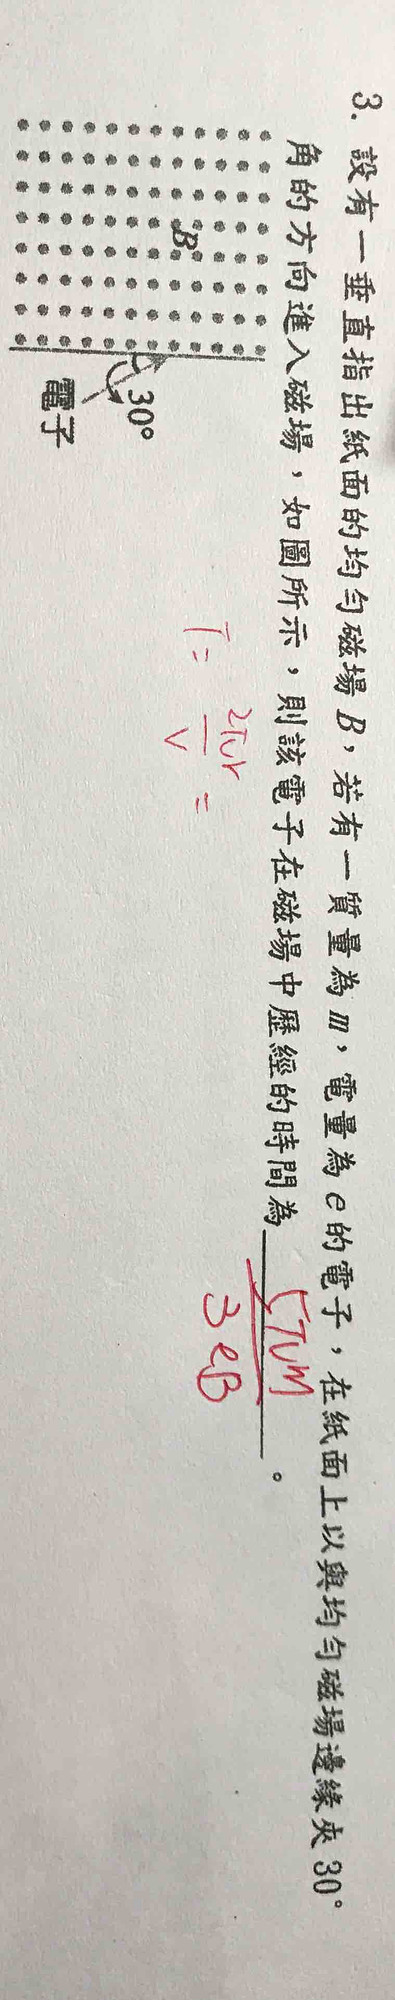 3. 設有一垂直指出紙面的均勻磁場 B，若有一質量為 m，電量為 e 的電子，在紙面上以與均勻磁場邊緣夾 30°
角的方向進入磁場，如圖所示，則該電子在磁場中歷經的時間為＿＿＿＿。
5πm
3eB
B
30°
電子
T = 2πr/v =